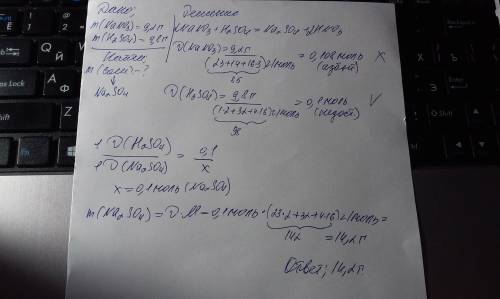 Дано:
m(NaNO₃) = 9,2г
m(H₂SO₄) = 9,8г
Найти:
m(соли) - ?
Na₂SO₄
Решение
2NaNO₃ + H₂SO₄ = Na₂SO₄ + 2HNO₃
ν(NaNO₃) = 9,2г / (23+14+16·3)г/моль = 0,108 моль (избыт) X
85
ν(H₂SO₄) = 9,8г / (1·2+32+4·16)г/моль = 0,1 моль (недост) V
98
1 ν(H₂SO₄) / 1 ν(Na₂SO₄) = 0,1 / x
x = 0,1 моль (Na₂SO₄)
m(Na₂SO₄) = ν·M = 0,1 моль · (23·2+32+4·16)г/моль =
142 = 14,2 г
Ответ: 14,2г